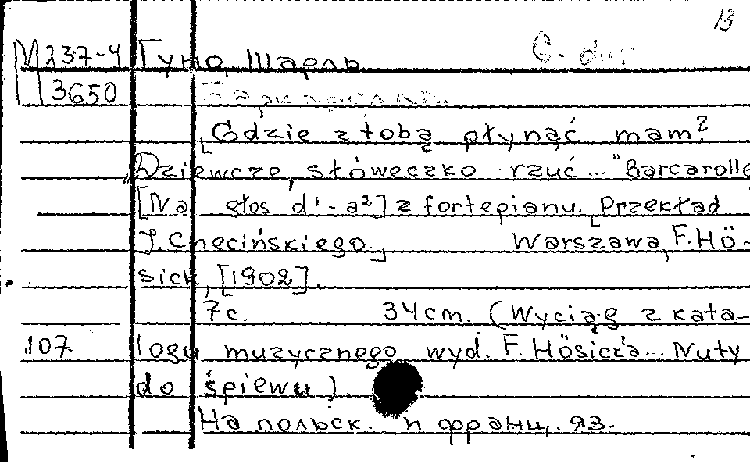 13
М237-4 Гуно, Шарль C. dur
3650
[Gdzie z tobą płynąć mam?
"Dziewczę, słóweczko rzuć..." Barcarolle
[Na głos d¹-a²] z fortepianu. [Przekład
J. Chęcińskiego] Warszawa, F. Hö-
sick, [1902].
7c. 34cm. (Wyciąg z kata-
107 logu muzycznego wyd. F. Hösicka... Nuty
do śpiewu)
На польск. и франц. яз.